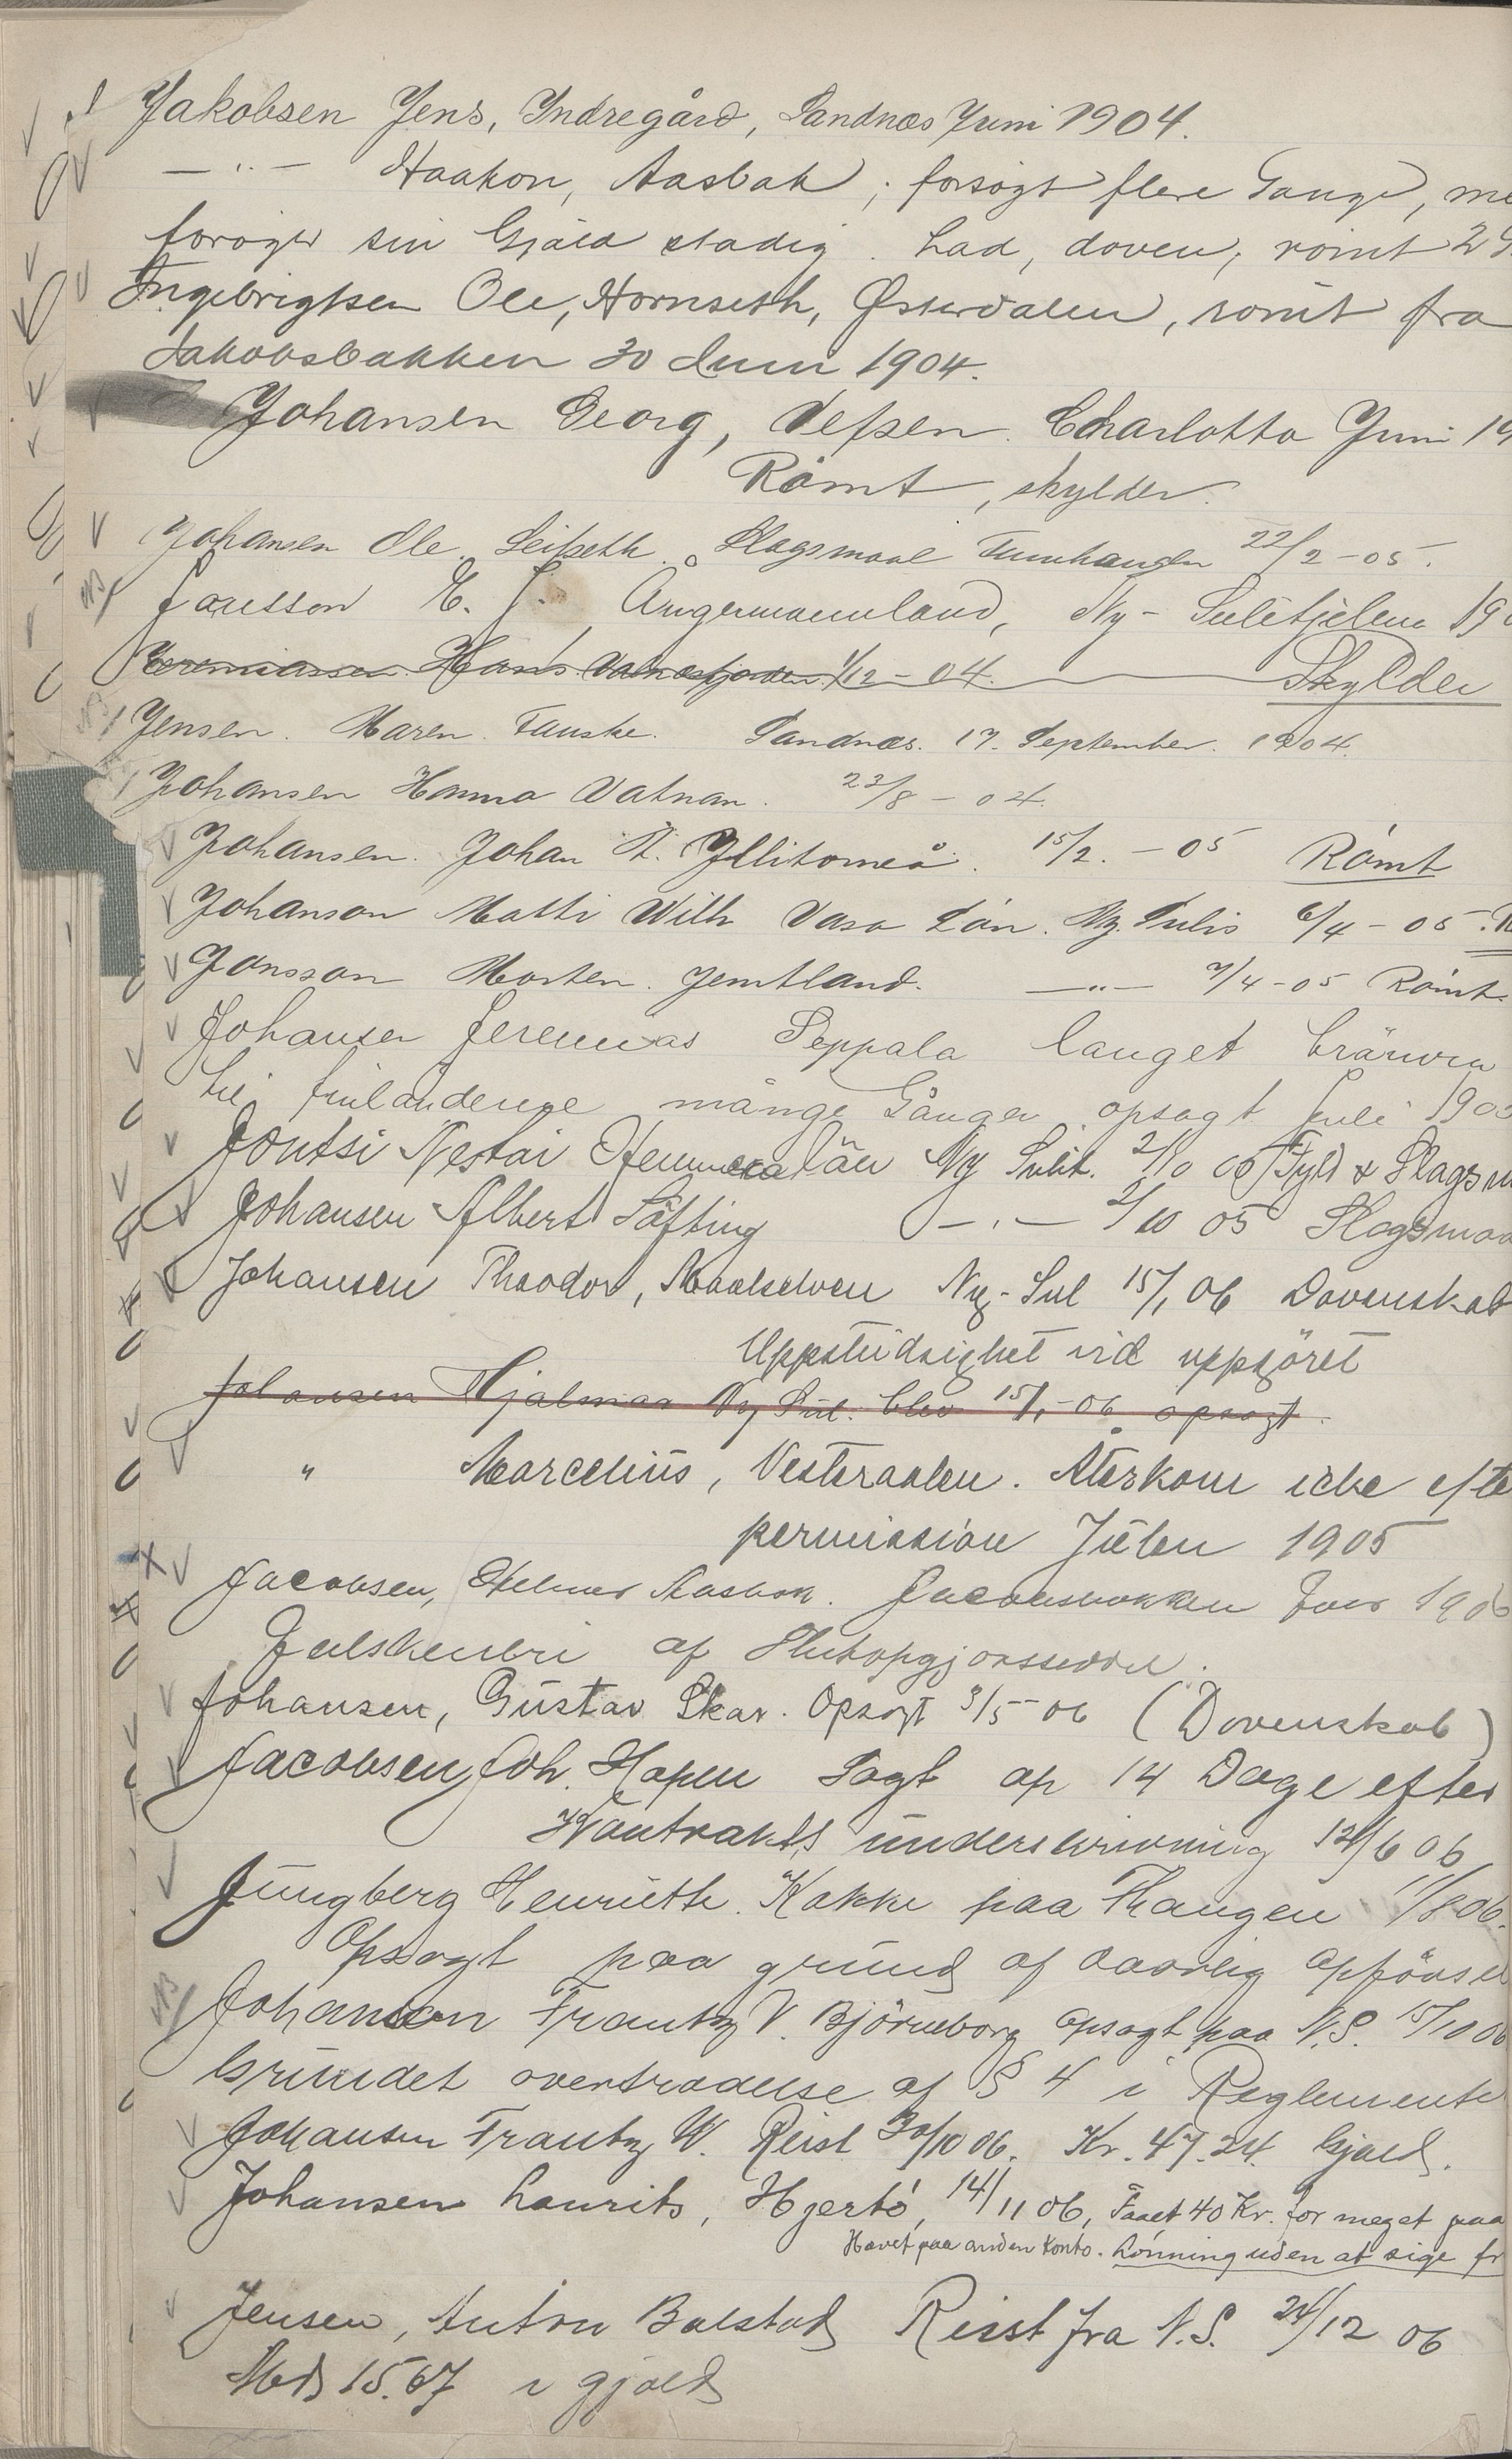 Jakobsen Jens, Indregård, Sandnæs Juni 1904.
— " — Haakon, Aasbak; forsøgt flere Gange, me
forøger sin Gjæld stadig. Lad, doven, rømt 29
Ingebrigtsen Ole, Hornseth, Østerdalen, rømt fra
Jakobsbakken 30 Juni 1904.
Johansen Georg, Vefsen. Charlotta Juni 19
Rømt, skylder.
Johansen Ole Leifseth. Slagsmaal Furuhaugen 22/2 - 05.
Jonsson E. J. Ångermannland, Ny-Sulitjelma 19
Jeremiassen Hans Valnesfjorden 1/12 - 04. Skylder
Jensen. Maren. Fauske. Sandnæs. 17. September. 1904.
Johansen Hanna Vatnan. 23/8 - 04.
Johansen. Johan H. Yllitorneå. 15/2. - 05 Rømt
Johanson Matti Wilh Vasa Län. Ny. Sulis 6/4 - 05.
Jonsson Morten. Jemtland. — " — 7/4 - 05 Rømt
Johansen Jeremias Seppala langet brännvin
till finländerne månge Gånger opsagt Juli 190
Jontsi Nestar län Ny Sulit. 2/10 05 Fyld & Slagsm
Johansen Albert Säfting — " — 2/10 05 Slagsmaa
Johansen Theodor, Maalselven Ny-Sul 15/1 06 Dovenskab
Uppstudsighet vid uppgöret
Johansen Hjalmar Ny Sul. blev 15/1 - 06 opsagt.
" Marcelius, Vesteraalen. Återkom icke efte
permission Julen 1905
Jacobsen, Helmer Aasbak. Jacobsbakken 190
af Slutopgjørssedel.
Johansen, Gustav Skar. Opsagt 3/5 - 06 (Dovenskab)
Jacobsen, Joh. Hopen Sagt op 14 Dage efter
Kontrakts underskrivning 12/6 06
Jungberg Henriette. Kokke paa Thangen 11/8 06.
Opsagt paa grund af daarlig opførsel
Johanson Frantz V. Björneborg opsagt paa N.S. 15/10 06
Grundet overtrædelse af § 4 i Reglemente
Johansen Frantz W. Reist 30/10 06. Kr. 47.24. Gjæld.
Johansen Laurits, Hjertø, 14/11 06, Faaet 40 Kr. for meget paa
Hævet paa anden Konto. Lønning uden at sige fr
Jensen, Anton Balstad Reist fra N.S. 24/12 06
Med 15.67 i gjæld